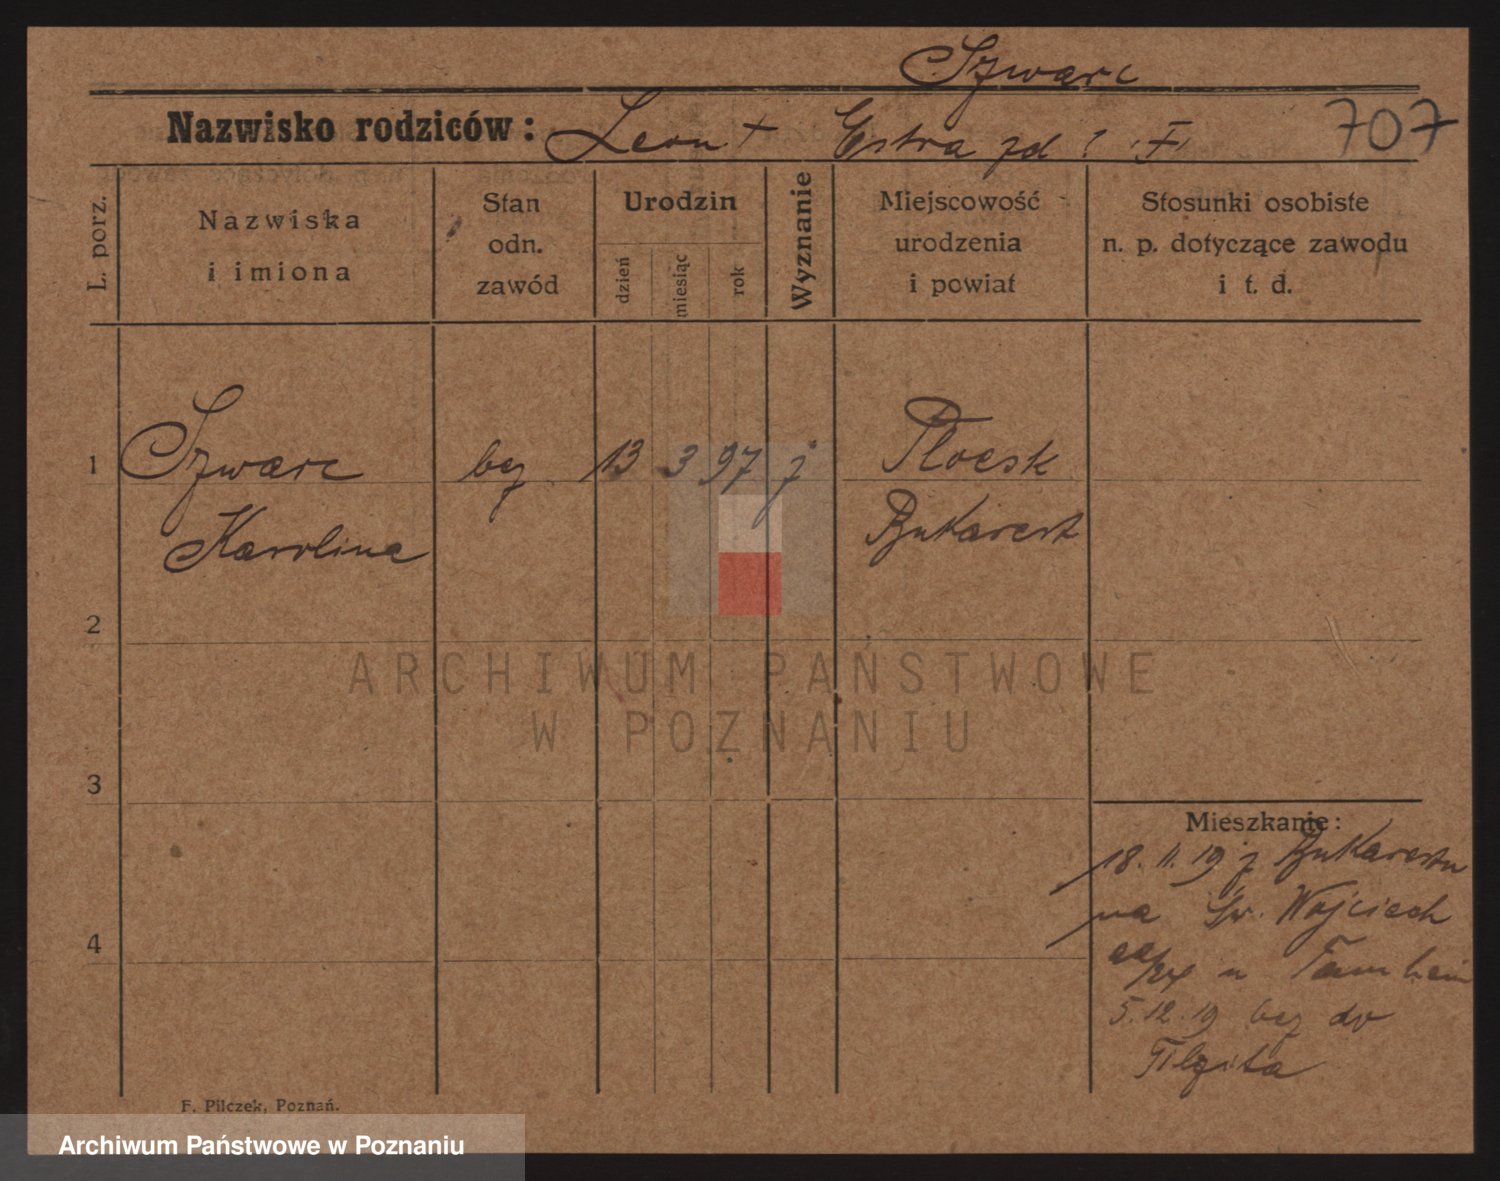 Szwarc
Nazwisko rodziców: Leon + Estra zd ? F
707
L. porz.
Nazwiska
i imiona
Stan
odn.
zawód
Urodzin
dzień
miesiąc
rok
Wyznanie
Miejscowość
urodzenia
i powiat
Stosunki osobiste
n. p. dotyczące zawodu
i t. d.
1
Szwarc
Karolina
bez
13 3 97
j
Ploesk
Bukarest
2
ARCHIWUM PAŃSTWOWE
W POZNANIU
3
4
Mieszkanie:
18. 11. 19 z Bukarestu
na Św. Wojciech
u
5. 12. 19 bez do
Tilzita
F. Pilczek, Poznań.
Archiwum Państwowe w Poznaniu